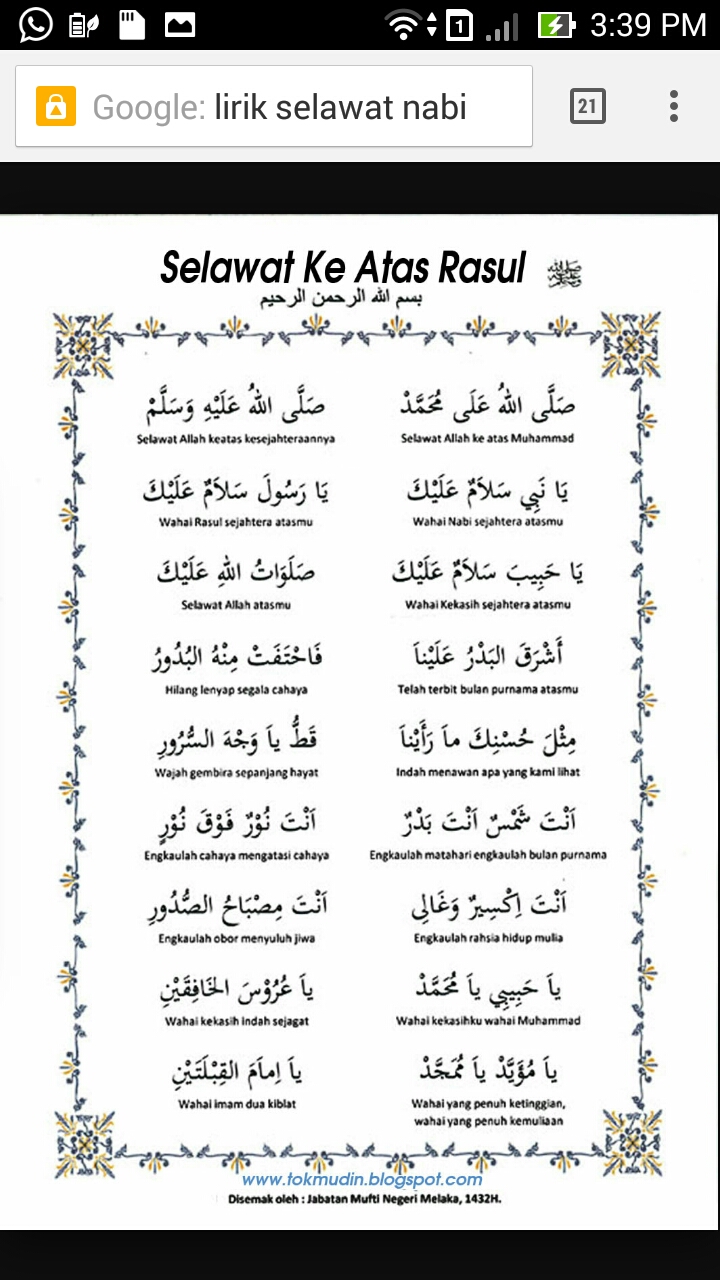 3:39 PM
1
Google: lirik selawat nabi
21
Selawat Ke Atas Rasul ﷺ
بسم الله الرحمن الرحيم
صَلَّى اللهُ عَلَى مُحَمَّدْ صَلَّى اللهُ عَلَيْهِ وَسَلَّمْ
Selawat Allah ke atas Muhammad Selawat Allah keatas kesejahteraannya
يَا نَبِي سَلاَمٌ عَلَيْكَ يَا رَسُولَ سَلاَمٌ عَلَيْكَ
Wahai Nabi sejahtera atasmu Wahai Rasul sejahtera atasmu
يَا حَبِيبَ سَلاَمٌ عَلَيْكَ صَلَوَاتُ اللهِ عَلَيْكَ
Wahai Kekasih sejahtera atasmu Selawat Allah atasmu
أَشْرَقَ البَدْرُ عَلَيْناَ فَاحْتَفَتْ مِنْهُ البُدُورُ
Telah terbit bulan purnama atasmu Hilang lenyap segala cahaya
مِثْلَ حُسْنِكَ ماَ رَأَيْناَ قَطُّ ياَ وَجْهَ السُّرُورِ
Indah menawan apa yang kami lihat Wajah gembira sepanjang hayat
اَنْتَ شَمْسٌ اَنْتَ بَدْرٌ اَنْتَ نُوْرٌ فَوْقَ نُوْرٍ
Engkaulah matahari engkaulah bulan purnama Engkaulah cahaya mengatasi cahaya
اَنْتَ اِكْسِيرٌ وَغَالِى اَنْتَ مِصْبَاحُ الصُّدُورِ
Engkaulah rahsia hidup mulia Engkaulah obor menyuluh jiwa
ياَ حَبِيبِي ياَ مُحَمَّدْ ياَ عُرُوْسَ الخَافِقَيْنِ
Wahai kekasihku wahai Muhammad Wahai kekasih indah sejagat
ياَ مُؤَيَّدْ ياَ مُمَجَّدْ ياَ اِماَمَ القِبْلَتَيْنِ
Wahai yang penuh ketinggian, Wahai imam dua kiblat
wahai yang penuh kemuliaan
www.tokmudin.blogspot.com
Disemak oleh : Jabatan Mufti Negeri Melaka, 1432H.